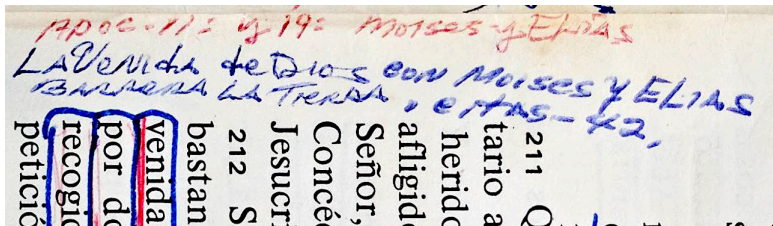 Apoc-11: y 19: Moises y Elias
LA Venida de Dios con Moises y ELIAS
BARRERA LA TIERRA,
211 Q
tario a
herido
afligido
Señor,
Concé
Jesucri
212 S
bastan
venida
por do
recogi
petició